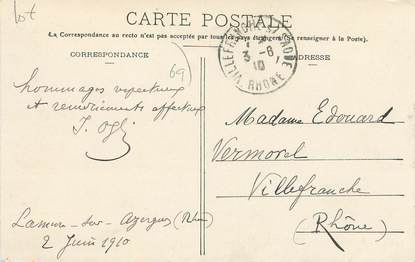 lot
CARTE POSTALE
La Correspondance au recto n'est pas acceptée par tous les pays étrangers (Se renseigner à la Poste).
CORRESPONDANCE
ADRESSE
VILLEFRANCHE-S/-SAONE
3 -6
10
RHONE
69
hommages respectueux
et remerciements affectueux
Madame Edouard
Vermorel
Villefranche
(Rhône)
Lamure-sur-Azergues (Rhône)
2 Juin 1910